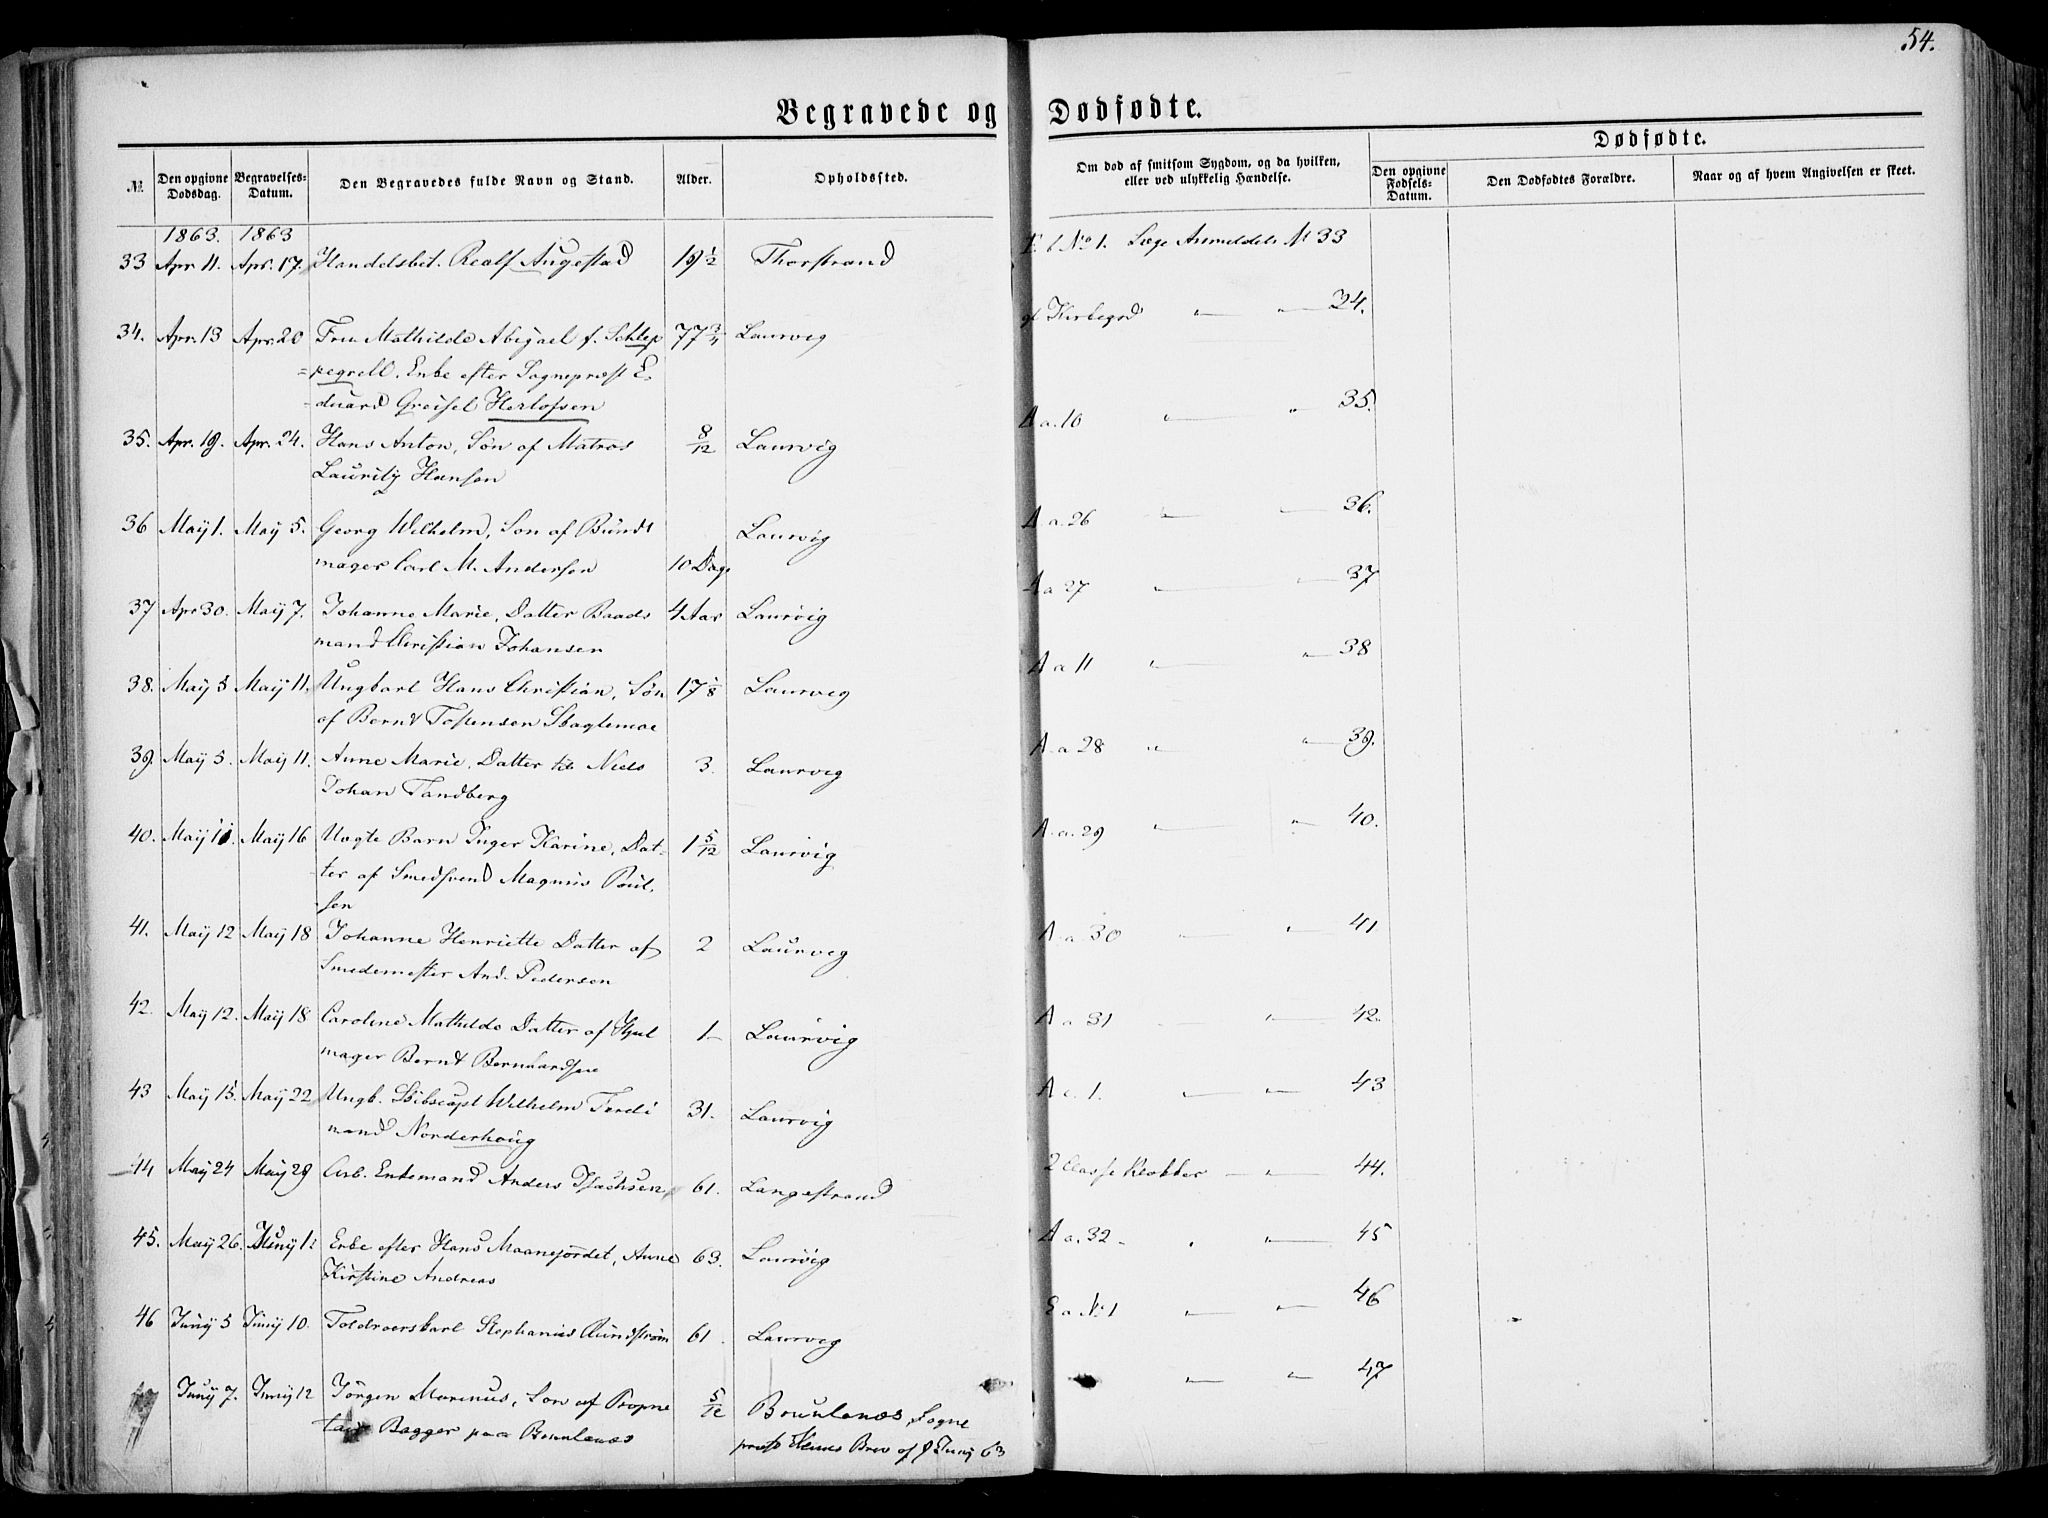 54.
Begravede og Dødfødte.
№.
Den opgivne Dødsdag.
Begravelses-Datum.
Den Begravedes fulde Navn og Stand.
Alder.
Opholdssted.
Om død af smitsom Sygdom, og da hvilken,
eller ved ulykkelig Hændelse.
Dødfødte.
Den opgivne Fødsels-Datum.
Den Dødfødtes Forældre.
Naar og af hvem Angivelsen er skeet.
1863. 1863
33 Apr. 11. Apr. 17. Handelsbet. Realf Augestad 19 1/2 Thorstrand No 1. Læge Anmeldels № 33
34. Apr. 13 Apr. 20 Fru Mathilde Abigael f. Schlep 77 3/4 Laurvig 34.
=pegrell. Enke efter Sognepræst E-
=duard Greisel Herlofsen
35. Apr. 19. Apr. 24. Hans Anton, Søn af Matros 8/12 Laurvig A a. 10 " " 35.
Lauritz Hansen
36 May 1. May 5. Georg Wilhelm, Søn af Bundt Laurvig A a. 26 " " 36.
mager Carl M. Andersen 10 Dage
37 Apr 30. May 7. Johanne Marie, Datter Baads 4 Aar Laurvig A a 27 " " 37
mand Christian Johansen
38. May 5 May 11. Ungkarl Hans Christian, Søn 17 1/8 Laurvig A a 11 " " 38
af Bernt Tostensen
39. May 5. May 11. Anne Marie, Datter til Niels 3. Laurvig A. a 28 " " 39.
Johan Tandberg
40. May 11. May 16 Uægte Barn Inger Karine, Dat- 1 5/12 Laurvig A. a. 29 " " 40.
ter af Smedsvend Magnus Poul-
sen
41. May 12 May 18 Johanne Henriette Datter af 2 Laurvig A. a. 30 " " 41
Smedemester And. Pedersen
42. May 12. May 18 Caroline Mathilde Datter af Hjul 1 Laurvig A a 31 " 42.
mager Bernt Bernhardsen
43 May 15. May 22 Ungk. Skibscapt Wilhelm Ferdi 31. Laurvig A c. 1. " " 43
nand Norderhoug
44 May 24 May 29 Arb. Enkemand Anders Isachsen 61. Langestrand 2 Classe Klokker " 44.
45. May 26. Juny 1. Enke efter Hans Maanejordet, Anne 63. Laurvig A a. 32 " " 45
Kirstine Andreas
46 Juny 5 Juny 10. Toldroerskarl Stephanius Rundstrøm 61. Laurvig E a № 1 " " 46
Juny 7. Juny 12 Jørgen Marinus, Søn af Proprie 5/12 Brunlanæs Sogne " " 47
tair Bagger paa Brunlanæs Brev af 9 Juny 63